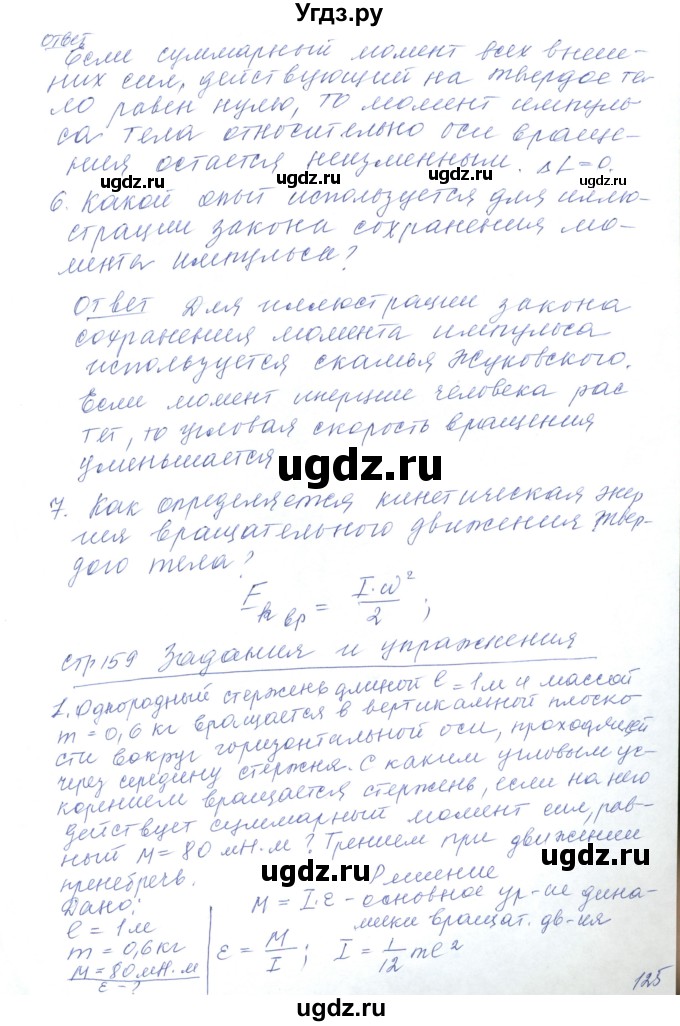 Угдз.ру
ответ
Если суммарный момент всех внеш-
них сил, действующий на твердое те-
ло равен нулю, то момент импуль-
са тела относительно оси враще-
ния остается неизменным. ΔL=0.
ugdz.ru ugdz.ru ugdz.ru
6. Какой опыт используется для иллю-
страции закона сохранения мо-
мента импульса?
Ответ Для иллюстрации закона
сохранения момента импульса
используется скамья Жуковского.
Если момент инерции человека рас
тет, то угловая скорость вращения
уменьшается
ugdz.ru ugdz.ru
7. Как определяется кинетическая энер
гия вращательного движения твер-
дого тела?
E к вр = I·ω²/2 ;
стр 159 Задания и упражнения
1. Однородный стержень длиной ℓ=1м и массой
m=0,6 кг вращается в вертикальной плоско
сти вокруг горизонтальной оси, проходящей
через середину стержня. С каким угловым ус-
корением вращается стержень, если на него
действует суммарный момент сил, рав-
ный M=80 мН·м? Трением при движении
пренебречь.
ugdz.ru ugdz.ru
Дано: Решение
ℓ=1м M=I·ε - основное ур-ие дина-
m=0,6кг мики вращат. дв-ия
M=80мН·м ε = M/I ; I = 1/12 mℓ²
ε-?
ugdz.ru ugdz.ru
125
ugdz.ru